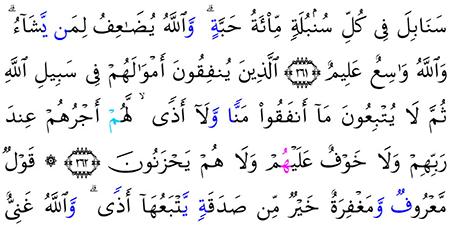 سَنَابِلَ فِى كُلِّ سُنۢبُلَةٍ مِّا۟ئَةُ حَبَّةٍ ۗ وَٱللَّهُ يُضَـٰعِفُ لِمَن يَشَآءُ ۗ
وَٱللَّهُ وَٰسِعٌ عَلِيمٌ ﴿٢٦١﴾ ٱلَّذِينَ يُنفِقُونَ أَمْوَٰلَهُمْ فِى سَبِيلِ ٱللَّهِ
ثُمَّ لَا يُتْبِعُونَ مَآ أَنفَقُوا۟ مَنًّا وَلَآ أَذًى ۙ لَّهُمْ أَجْرُهُمْ عِندَ
رَبِّهِمْ وَلَا خَوْفٌ عَلَيْهِمْ وَلَا هُمْ يَحْزَنُونَ ﴿٢٦٢﴾ ۞ قَوْلٌ
مَّعْرُوفٌ وَمَغْفِرَةٌ خَيْرٌ مِّن صَدَقَةٍ يَتْبَعُهَآ أَذًى ۗ وَٱللَّهُ غَنِىٌّ